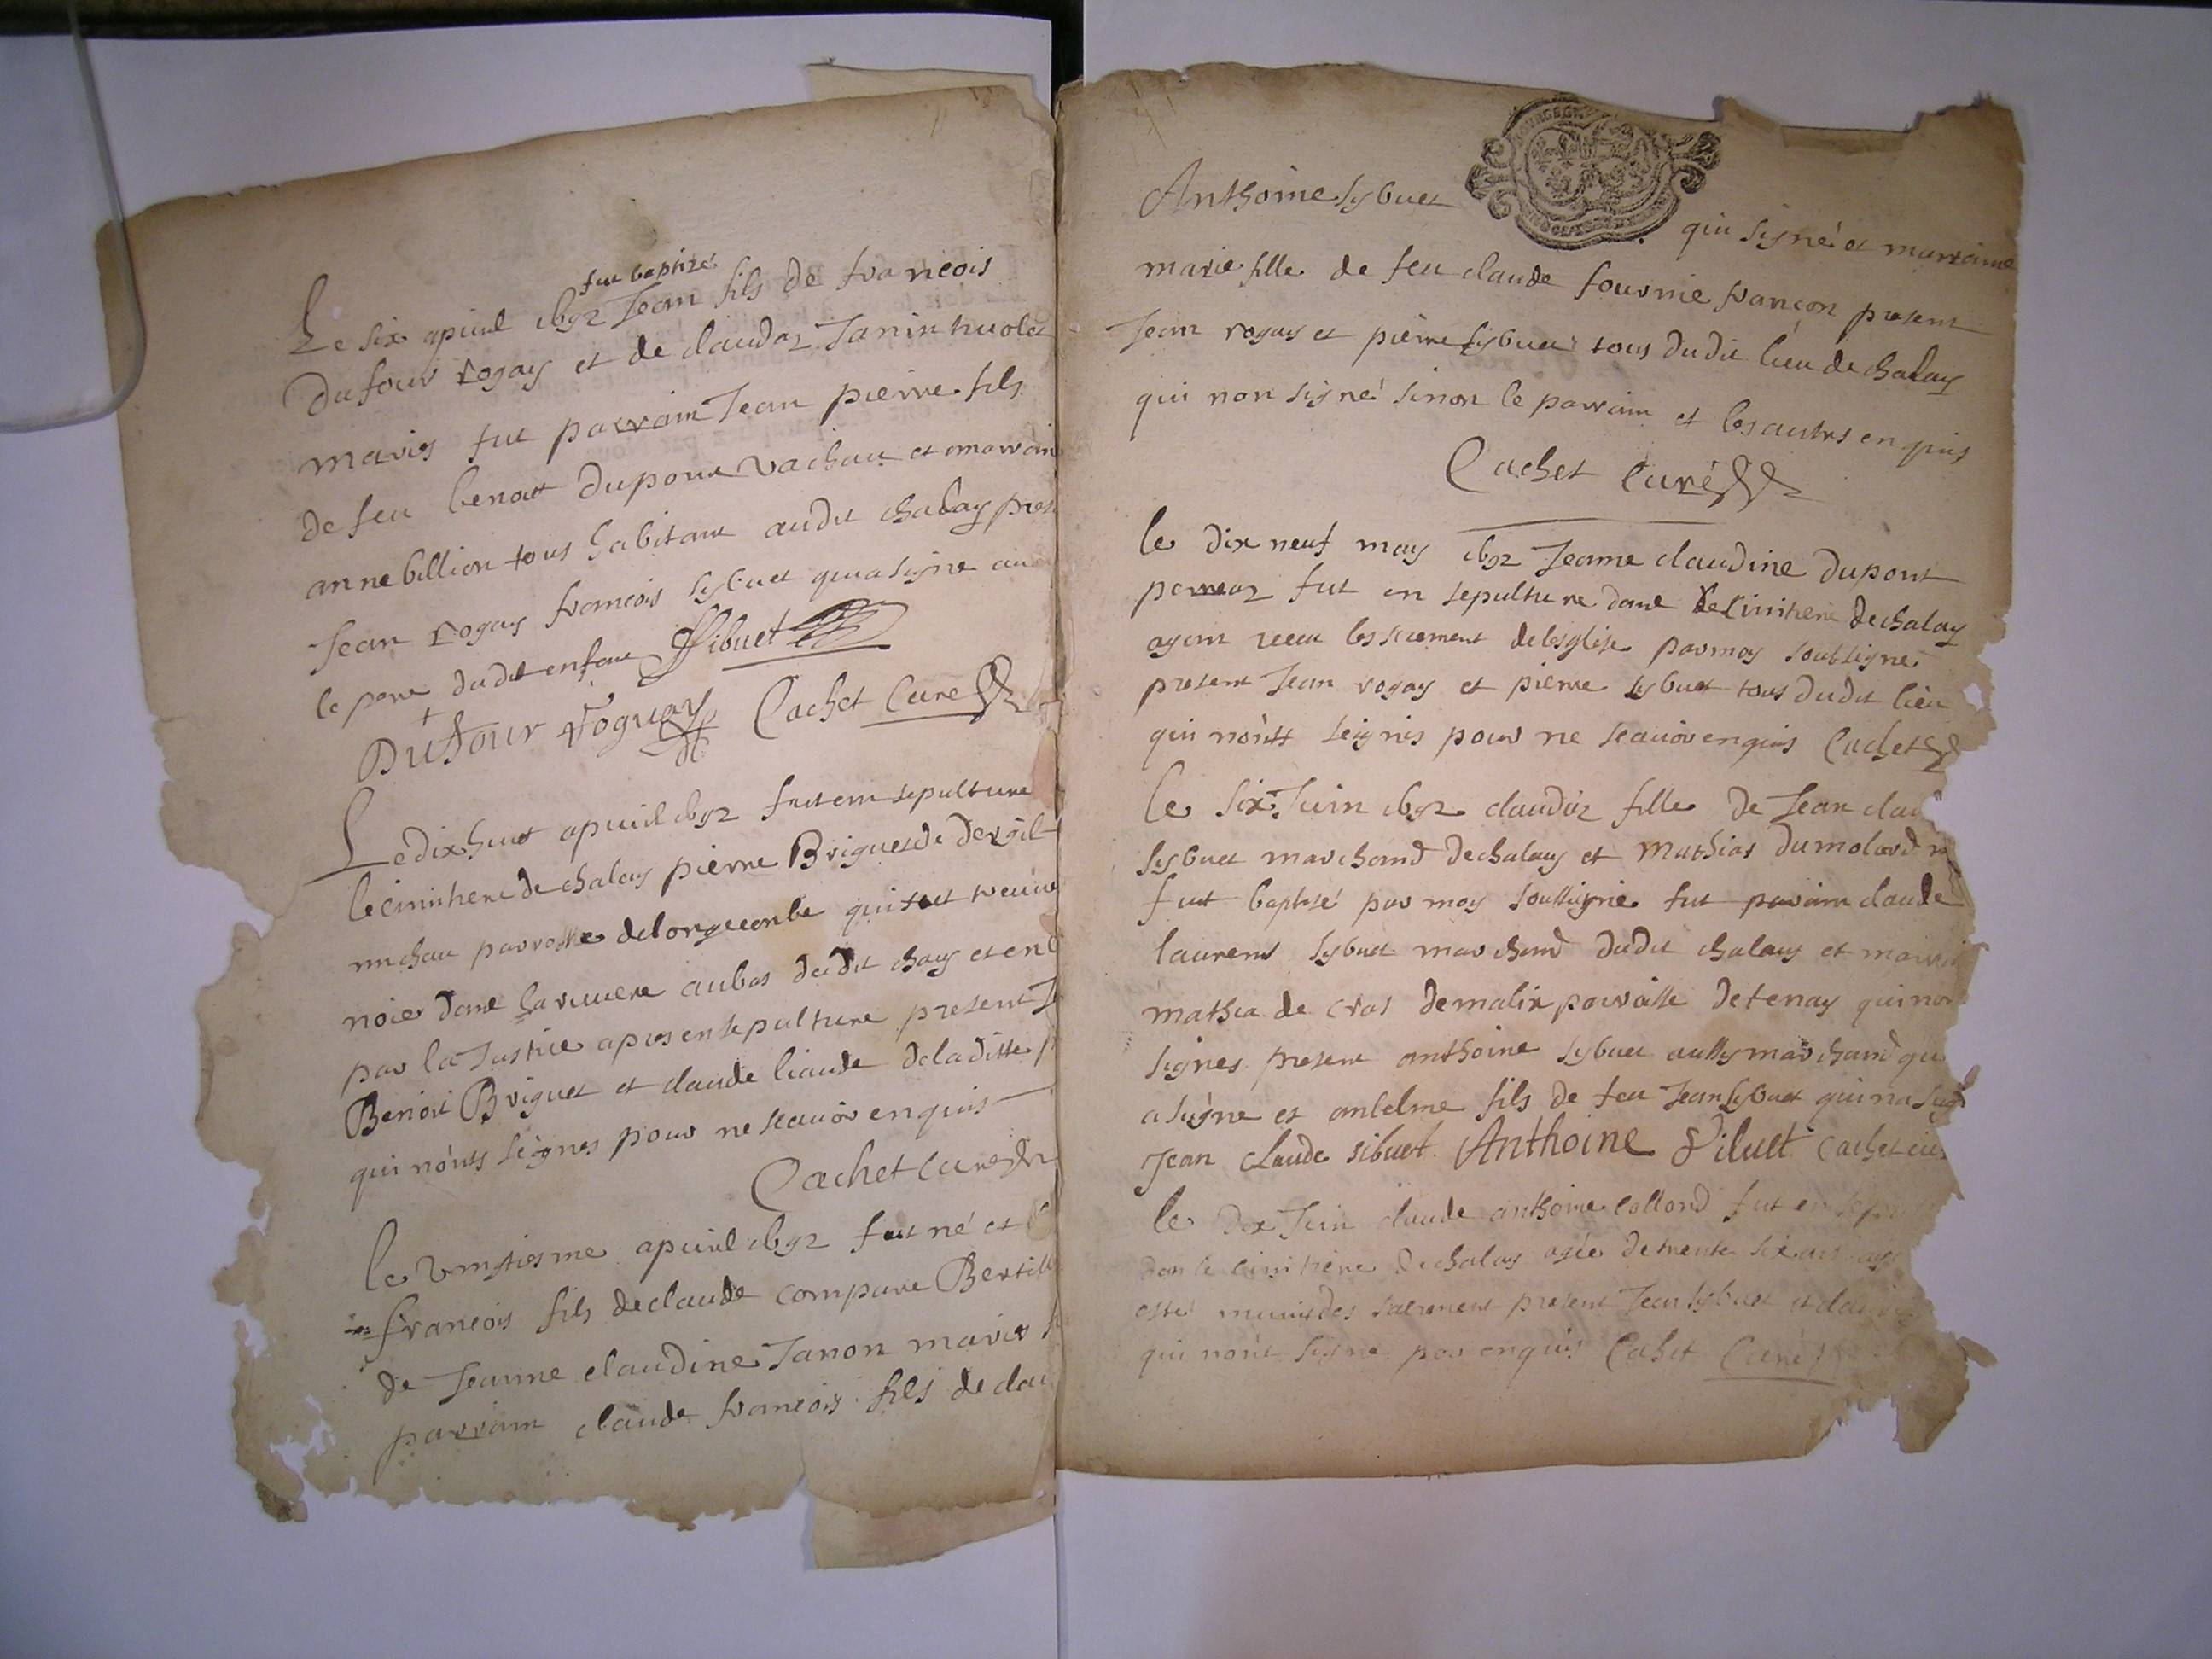 fut baptizé
Le six apuril 1692 Jean fils de francois
Dufour rogay et de claudaz Janin huolet
maries fut parrain Jean pierre fils
de feu benoit dupont vachat et marrain
anne billion tous habitant audit chalay pres
Jean rogay francois sybuet qui a signe au
le pere dudit enfant Sibuet
Dufour Roguay Cachet Cure
Le dix huit apuril 1692 fut em sepulture
le cimitiere de chalay pierre Briguet de
michau parroisse delongecombe qui fut treuve
noié dans la riuiere au bas dudit chay et en
par la Justice apres ensepulture present J
Benoit Briguet et claude liaude de laditte p
qui nonts signes pour ne scauoir enquis
Cachet Cure
le vingtiesme apuril 1692 fut né et b
francois fils de claude compare Bertill
de Jeanne claudine Janon maries f
parrain claude francois fils de clau
Anthoine sybuet
qui signé et marraine
marie fille de feu claude fournie françon present
Jean rogay et pierre sybuet tous dudit lieu de chalay
qui non signé sinon le parrain et les autres enquis
Cachet Curé
le dix neuf may 1692 Jeanne claudine dupont
fut en sepulture dans le Cimitiere de chalay
ayant receu les sacrement de lesglise par moy soubsigne
present Jean rogay et pierre sybuet tous dudit lieu
qui nonts seignis pour ne scauoir enquis Cachet
le six Juin 1692 claudaz fille de Jean clau
sybuet marchand de chalay et Mathias dumolard m
fut baptisé par moy soussigné fut parain claude
laurens sybuet marchand dudit chalay et marrai
mathia de cras de malix parroisse de tenay qui non
signes present anthoine sybuet aussy marchand qu
a signe et antelme fils de feu Jean sybuet qui na sig
Jean claude sibuet Anthoine Sibuet Cachet cu
le dix Juin claude anthoine collond fut en sepu
dans le cimitiere de chalay agée de trente six ans ay
esté munis des sacrement present Jean sybuet et clau
qui nont signe par enquis Cachet Curé